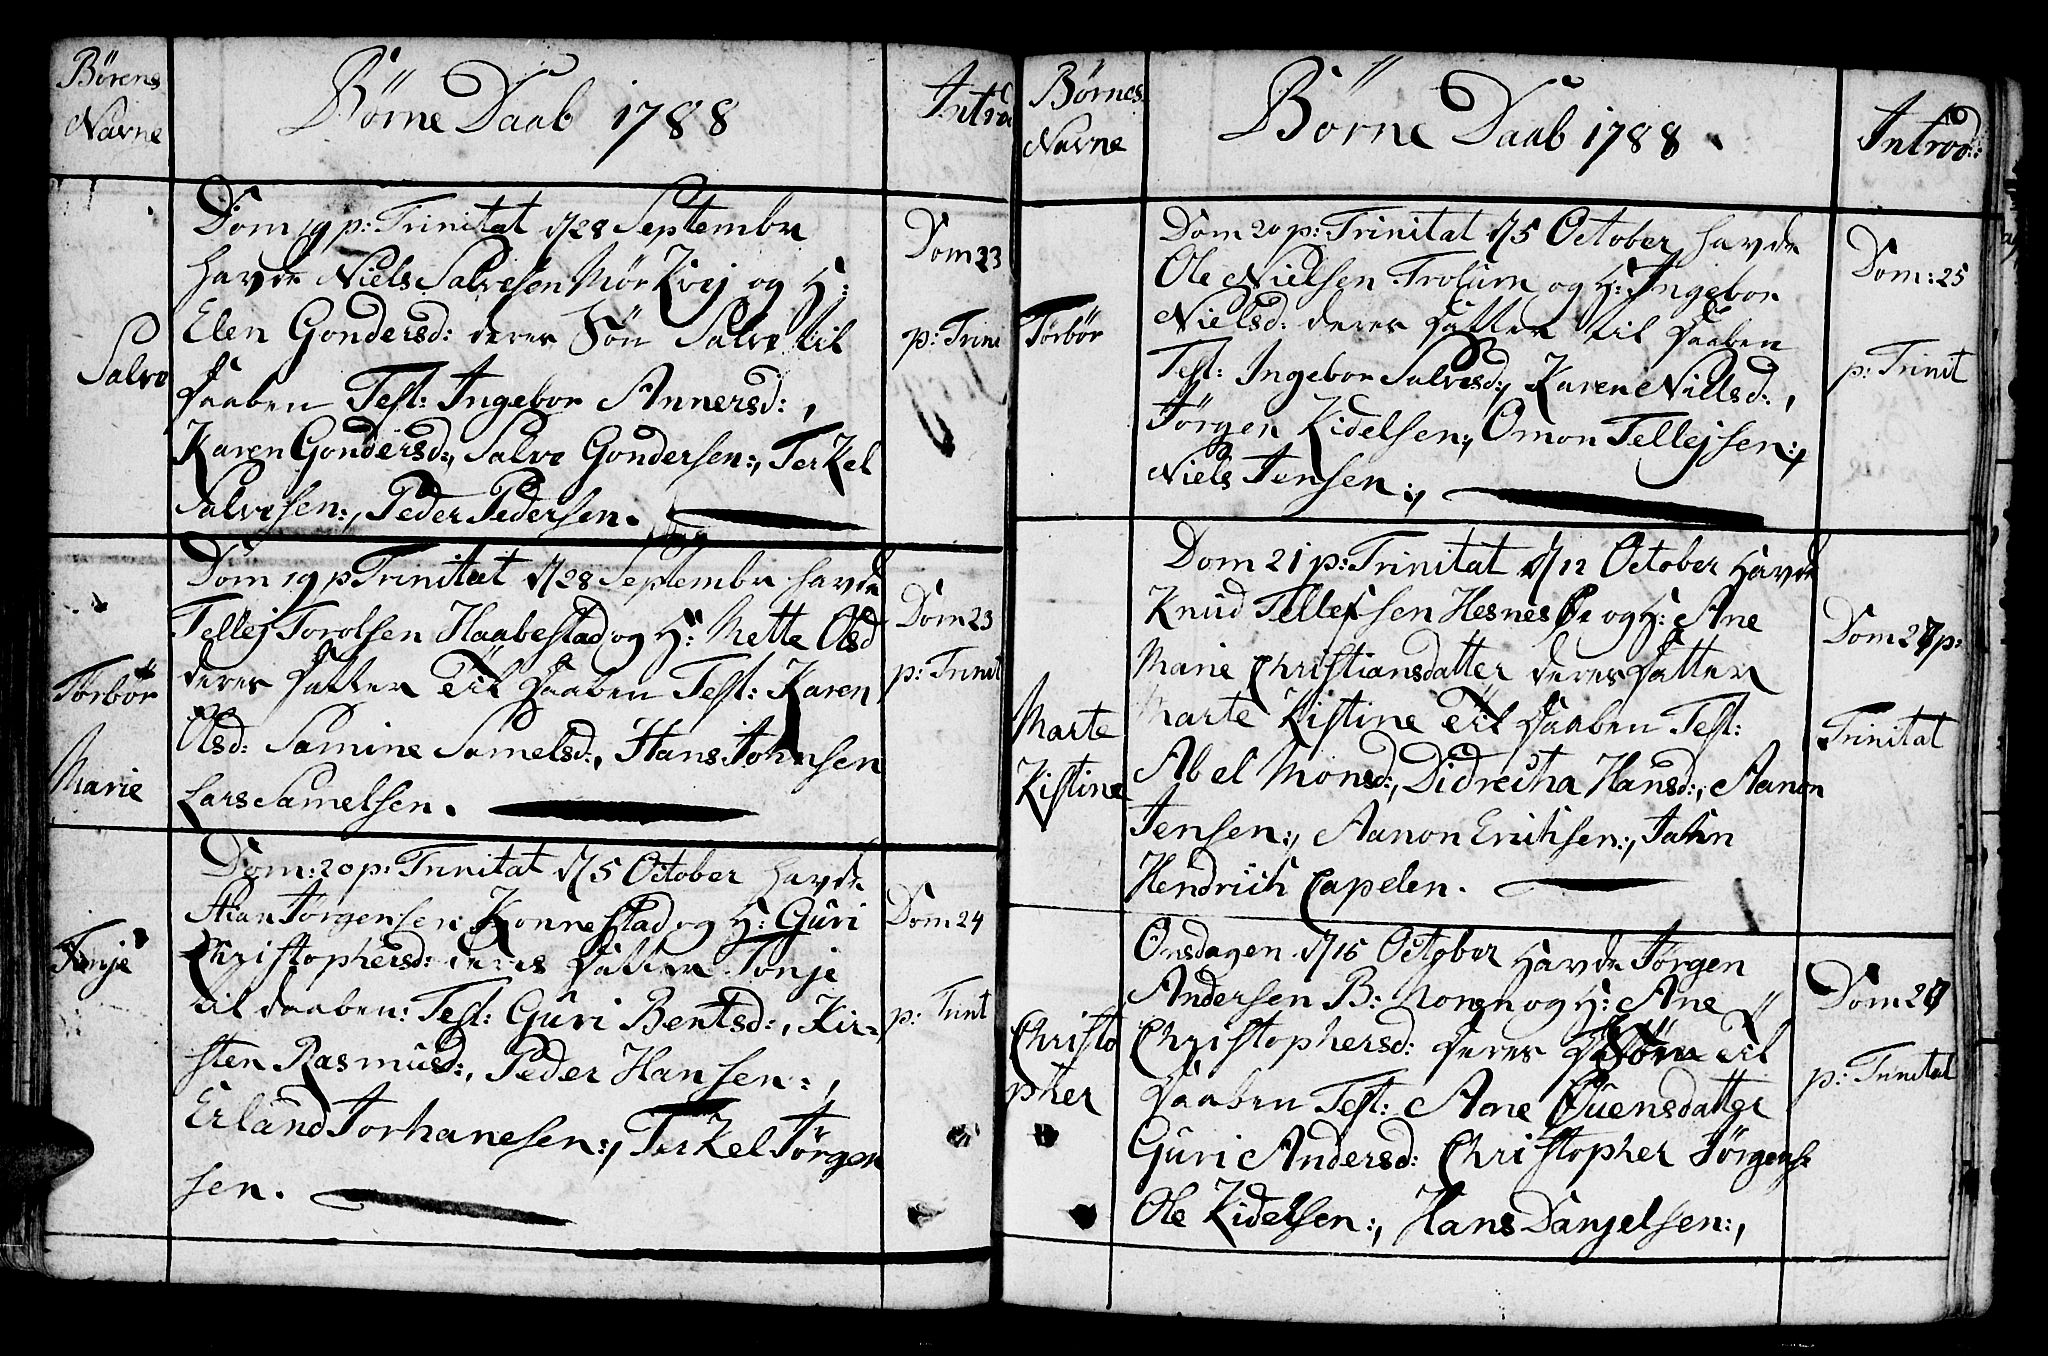 Börens
Navne
Börne Daab 1788
Introd
Dom 19 p: Trinitat d/28 Septembr
havde Niels Salvesen Mörkvej og H:
Elen Gondersd: deres Sön Salve til
Salve
daaben Test: Ingebor Annersd:,
Karen Gondersd:, Salve Gondersen:, Terkel
Salvesen:, Peder Pedersen.
Dom 23
p: Trini
Dom 19 p Trinitat d/28 Septembr havde
Tellej Torolsen Haabestad og H: Mette Olsd
deres datter Til daaben Test: Karen
Törbör
Marie
Olsd: Samine Samelsd:, Hans Johnsen
Lars Samelsen.
Dom 23
p: Trinit
Dom: 20 p: Trinitat d/5 October havde
Jörgensen Konnestad og H: Guri
Christophersd: deres datter Tonje
Tonje
til daaben: Test: Guri Bentsd:, Kir-
sten Rasmusd:, Peder Hansen:,
Erland Torhanesen:, Terkel Jörgen
sen.
Dom 24
p: Trint
Börnes
Navne
Börne Daab 1788.
Introd:
Dom 20 p: Trinitat d/5 October havde
Ole Nielsen Trolum og H: Ingebor
Nielsd: deres datter til daaben
Törbör
Test: Ingebor Salvesd:, Karen Nielsd:,
Jörgen Kidelsen:, Omon Tellejsen:,
Niels Jensen:,
Dom: 25
p: Trinit
Dom 21 p: Trinitat d/12 October Havde
Knud Tellefsen Hesnes Öe og H: Ane
Marie Christiansdatter deres datter
Marte Kistine Til daaben Test:
Marte
Kistine
Abel Monsd:, Didrecha Hansd:, Aanon
Jensen:, Aanon Erichsen:, Jahn
Hendrich Capelen.
Dom 27 p:
Trinitat
Onsdagen d/15 October Havde Jörgen
Andersen B: Norgn og H: Ane
Christophersd: deres Sön Til
Christo
pher
daaben Test: Ane Ouensdatter
Guri Andersd: Christopher Jörgens:
Ole Kidelsen:, Hans Danjelsen:,
Dom 27
p: Trinitat